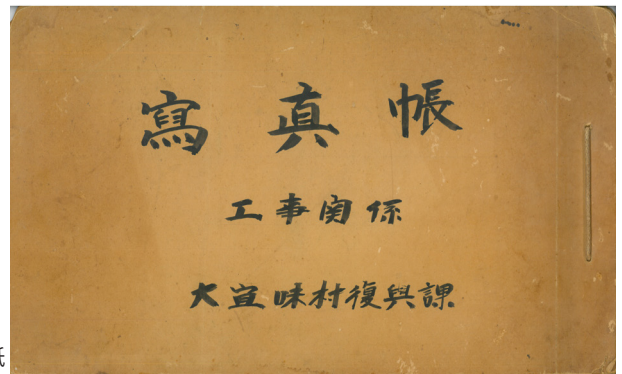 寫真帳
工事関係
大宜味村復興課
紙